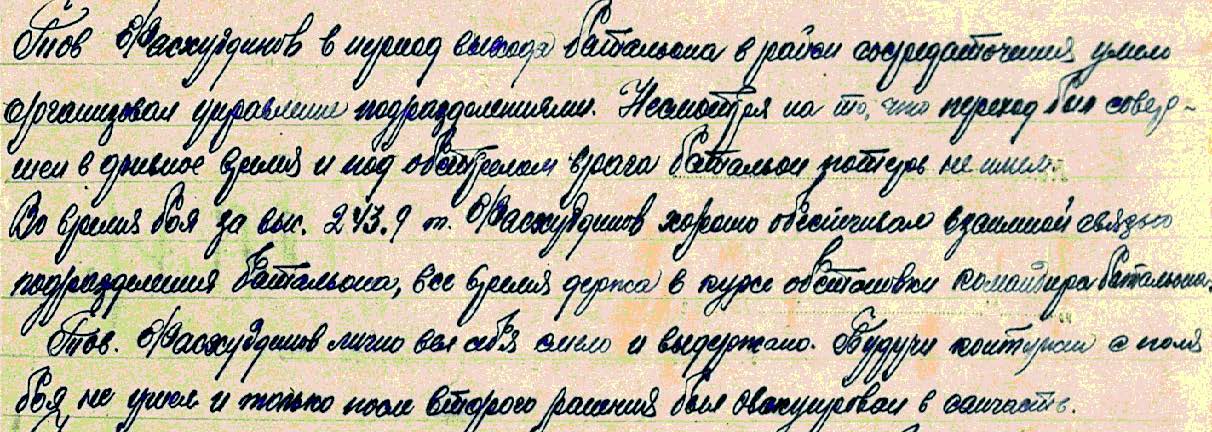 Тов Фасхутдинов в период выхода батальона в район сосредаточения умело
организовал управление подразделениями. Несмотря на то, что переход был совер-
шен в дневное время и под обстрелом врага батальон потерь не имел.
Во время боя за выс. 243.9 т. Фасхутдинов хорошо обеспечивал взаимной связью
подразделения батальона, все время держа в курсе обстановки командира батальона.
Тов. Фасхутдинов лично вел себя смело и выдержано. Будучи контужен с поля
боя, не ушел и только после второго ранения был эвакуирован в санчасть.